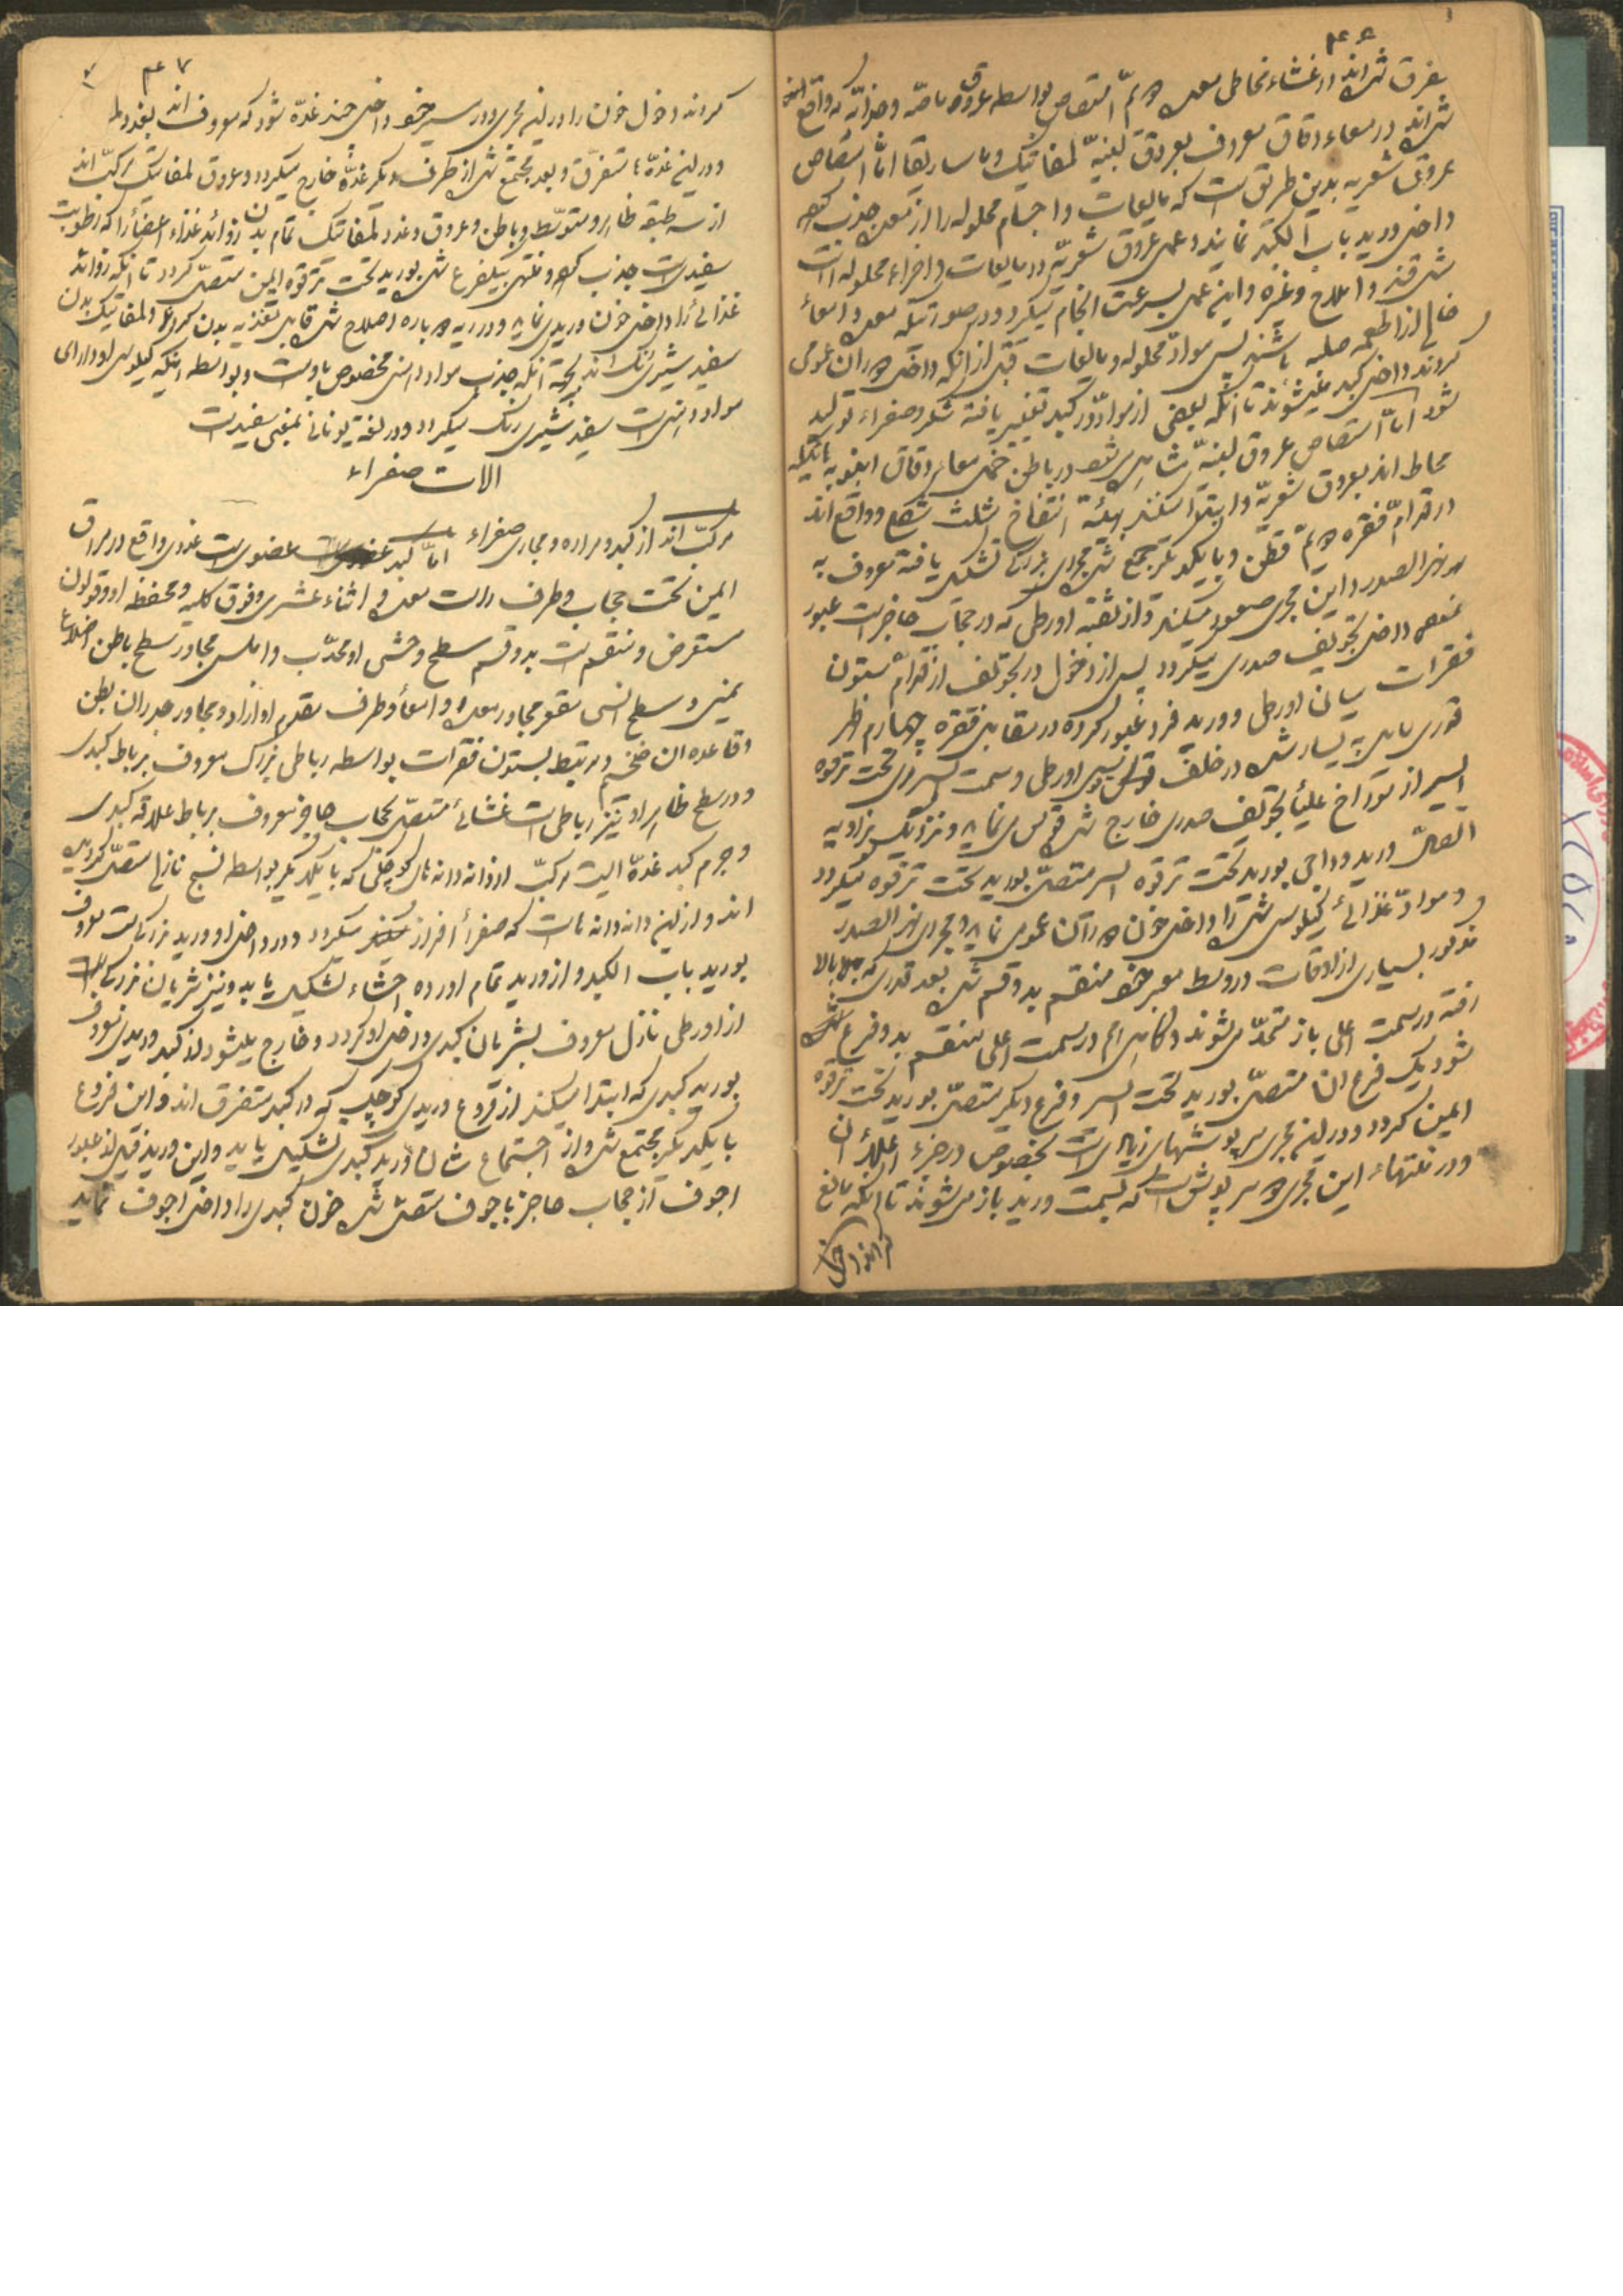 ۴۶
متفرق شده‌اند در غشاء مخاطی معده دویّم امتصاص بواسطه عروق ماصّه و غذائیّه که واقع
شده‌اند در معاء دقاق معروف بعروق لبنیّه لمفاتیک و ماساریقا امّا امتصاص
عروق شعریه بدین طریق است که مایعات و اجسام محلوله را از معده جذب کرده
داخل ورید باب الکبد نمایند و عمل عروق شعریّه در مایعات و اجزاء محلوله است
مثل قند و املاح و غیره و این عمل بسرعت انجام میگیرد در صورتیکه معده و امعاء
خالی از اطعمه صلبه باشند پس موادّ محلوله و مایعات قبل از آنکه داخل دوران عمومی
گردند داخل کبد میشوند تا آنکه بعضی از موادّ در کبد تغییر یافته شکر و صفراء تولید
شود امّا امتصاص عروق لبنیّه در باطن خمل معاء دقاق
محاط اند بعروق شعریّه و ابتدا میکنند بهیئة انتفاخ مثلث شکل و واقع اند
در قدّام فقره دویّم قطن و با یکدیگر جمع شده مجرای بزرگی تشکیل یافته معروف به
الصدر و این مجری صعود میکند و از ثقبه اورطی که در حجاب حاجز است عبور
نموده داخل تجویف صدری میگردد پس از دخول در تجویف از قدّام ستون
فقرات میان اورطی و ورید فرد عبور کرده در مقابل فقره چهارم ظهر
قدری مایل به یسار شده در خلف قوس اورطی و سمت ایسر مری تحت ترقوه
ایسر از سوراخ علیای تجویف صدری خارج شده قوسی نماید و نزدیک بزاویه
اتّصال ورید وداجی بورید تحت ترقوه ایسر متصل بورید تحت ترقوه میگردد
و موادّ غذائی کیلوسی شده را داخل خون دوران عمومی نماید و مجرای الصدر
مذکور بسیاری از اوقات در وسط معبر خود منقسم بدو قسم شده بعد قدری که بالا
رفته در سمت اعلی باز متّحد میشوند و گاهی هم در سمت اعلی منقسم بدو فرع
شود یک فرع آن متصل بورید تحت ایسر و فرع دیگر متصل بورید تحت ترقوه
ایمن گردد و در این مجری سرپوشهای زیادی است بخصوص در جزء اعلای آن
و در منتهاء این مجری دو سرپوش است که بسمت ورید باز میشوند تا آنکه مانع
از داخل
۴۷
گردند دخول خون را در این مجری و در سیر خود داخل چند غدّه شود که معروف اند بغدد
و در این غدّه متفرّق و بعد مجتمع شده از طرف دیگر غدّه خارج میگردد و عروق لمفاتیک مرکّب اند
از سه طبقه ظاهر و متوسّط و باطن و عروق و غدد لمفاتیک تمام بدن زوائد غذاء اعضا را که رطوبت
سفیدیست جذب کرده و منتهی بیکفرع شده بورید تحت ترقوه ایمن متصل گردد تا آنکه زوائد
غذائی را داخل خون وریدی نماید و در ریه دوباره اصلاح شده قابل تغذیه بدن گردد لمفاتیک بدن
سفید شیری رنگ اند بجهة آنکه جذب مواد مخصوص باوست و بواسطه اینکه کیلوس او دارای
مواد است سفید شیری رنگ میگردد و در لغة یونانی بمعنی سفید است
الات صفراء
مرکّب اند از کبد و مراره و مجاری صفراء امّا کبد عضوی است غددی واقع در مراق
ایمن تحت حجاب و طرف راست معده و اثناء عشری و فوق کلیه و محفظه او و قولون
مستعرض و منقسم است بدو قسم سطح وحشی او محدّب و املس مجاور سطح باطن اضلاع
یمنی و سطح انسی مقعر مجاور معده و امعا و طرف مقدم او آزاد و مجاور جدران بطن
و قاعده آن ضخیم و مرتبط بستون فقرات بواسطه رباطی بزرگ معروف برباط کبدی
و در سطح ظاهر او نیز رباطی است غشائی متصل بحجاب حاجز معروف برباط علاقه کبدی
و جرم کبد غدّه ایست مرکّب از دانه دانه های کوچکی که با یکدیگر بواسطه نسج نازلی متصل گردیده
اند و از این دانه دانه هاست که صفرا افراز میگردد و در داخل او ورید بزرگیست معروف
بورید باب الکبد و از ورید تمام اورده احشاء تشکیل یابد و نیز شریان بزرگی است
از اورطی نازل معروف بشریان کبدی داخل او گردد و خارج میشود از کبد وریدی معروف
بورید کبدی که ابتدا میکند از فروع وریدی کوچک که در کبد متفرق اند و این فروع
با یکدیگر مجتمع شده و از اجتماع شان ورید کبدی تشکیل یابد و این ورید قبل از عبور
اجوف از حجاب حاجز باجوف متصل شده خون کبدی را داخل اجوف نماید